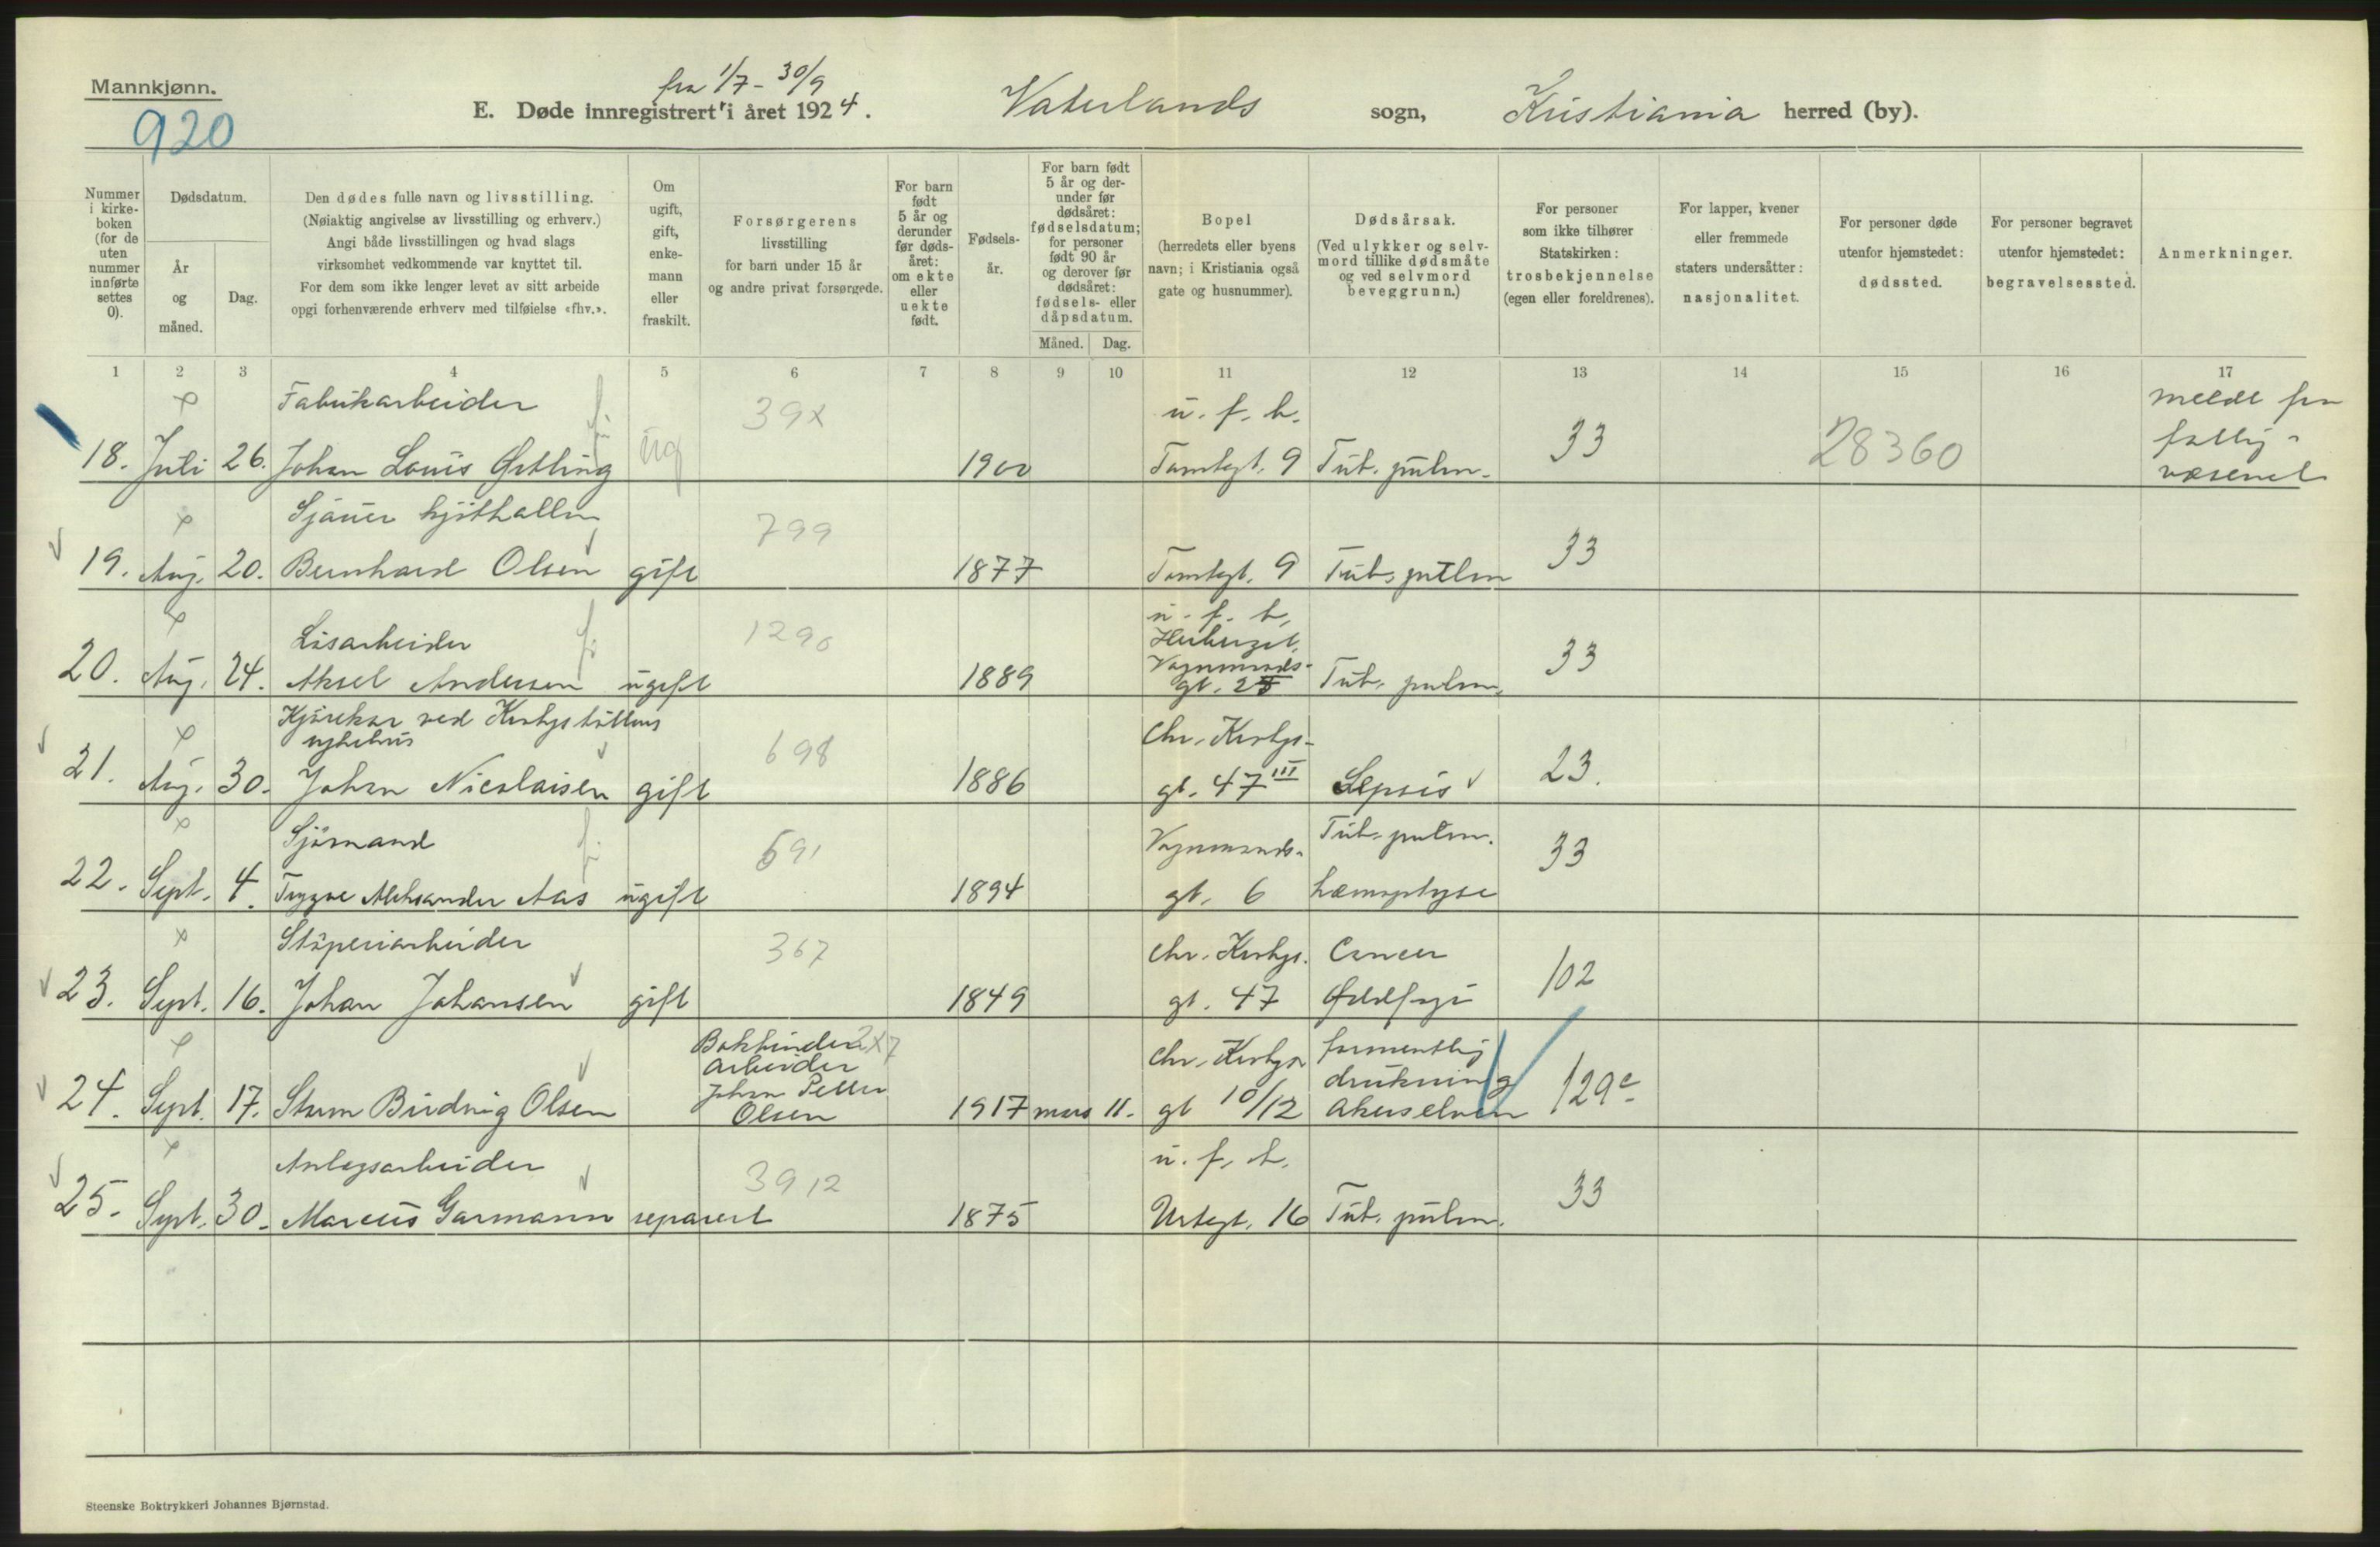 Mannkjønn.
920
fra 1/7 - 30/9
E. Døde innregistrert i året 1924.
Vaterlands sogn,
Kristiania herred (by).
Nummer i kirke-boken (for de uten nummer innførte settes 0).
Dødsdatum.
År og måned.
Dag.
Den dødes fulle navn og livsstilling.
(Nøiaktig angivelse av livsstilling og erhverv.)
Angi både livsstillingen og hvad slags
virksomhet vedkommende var knyttet til.
For dem som ikke lenger levet av sitt arbeide
opgi forhenværende erhverv med tilføielse «fhv.».
Om ugift, gift, enke-mann eller fraskilt.
Forsørgerens
livsstilling
for barn under 15 år
og andre privat forsørgede.
For barn født 5 år og derunder før døds-året: om ekte eller uekte født.
Fødsels-år.
For barn født 5 år og der-under før dødsåret: fødselsdatum; for personer født 90 år og derover før dødsåret: fødsels- eller dåpsdatum.
Måned. Dag.
Bopel
(herredets eller byens
navn; i Kristiania også
gate og husnummer).
Dødsårsak.
(Ved ulykker og selv-
mord tillike dødsmåte
og ved selvmord
beveggrunn.)
For personer
som ikke tilhører
Statskirken:
trosbekjennelse
(egen eller foreldrenes).
For lapper, kvener
eller fremmede
staters undersåtter:
nasjonalitet.
For personer døde
utenfor hjemstedet:
dødssted.
For personer begravet
utenfor hjemstedet:
begravelsessted.
Anmerkninger.
1 2 3 4 5 6 7 8 9 10 11 12 13 14 15 16 17
Fabrikarbeider 39x u. f. b. meldt fra
18. Juli 26. Johan Louis Østling ug 1900 Tomtegt. 9 Tub. pulm. 33 28360 fattig-
væsenet
Sjauer kjøthallen 799
19. Aug. 20. Bernhard Olsen gift 1877 Tomtegt. 9 Tub. pulm 33
Løsarbeider 1290 u. f. b. Herberget,
Vognmands-
20. Aug. 24. Aksel Andersen ugift 1889 gt. Tub. pulm. 33
Kjørekar ved
698 Chr. Krohgs-
21. Aug. 30. Johan Nicolaisen gift 1886 gt. 47 III Sepsis 23.
Sjømand 691 Vognmands- Tub. pulm.
22. Sept. 4. Trygve Aleksander Aas ugift 1894 gt. 6 hæmoptyse 33
Støperiarbeider 367 Chr. Krohgs. Cancer
23. Sept. 16. Johan Johansen gift 1849 gt. 47 Øsofagi 102
Bokbinder
arbeider Chr. Krohgs formentlig
Johan Petter drukning
24. Sept. 17. Sturm Birdnig Olsen Olsen 1917 mars 11. gt 10/12 Akerselven 129c
Anlegsarbeider 3912 u. f. b.
25. Sept. 30. Marcus Garmann separert 1875 Urtegt. 16 Tub. pulm. 33
Steenske Boktrykkeri Johannes Bjørnstad.